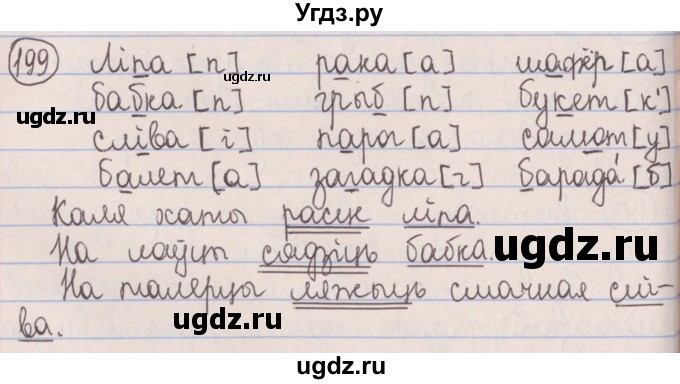 Угдз.ру
199 Ліпа [п] рака [а] шафёр [а]
бабка [п] грыб [п] букет [к']
сліва [і] парог [а] салют [у]
балет [а] загадка [г] барада́ [б]
Каля хаты расце ліпа.
На лаўцы сядзіць бабка.
На талерцы ляжыць смачная слі-
ва.
ugdz.ru
ugdz.ru
ugdz.ru
ugdz.ru
ugdz.ru
ugdz.ru
ugdz.ru